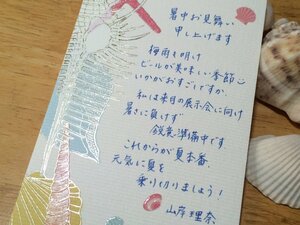 暑中お見舞い
申し上げます
梅雨も明け
ビールが美味しい季節
いかがおすごしですか。
私は来月の展示会に向け
暑さに負けず
鋭意準備中です
これからが夏本番、
元気に夏を
乗り切りましょう！
山岸理奈